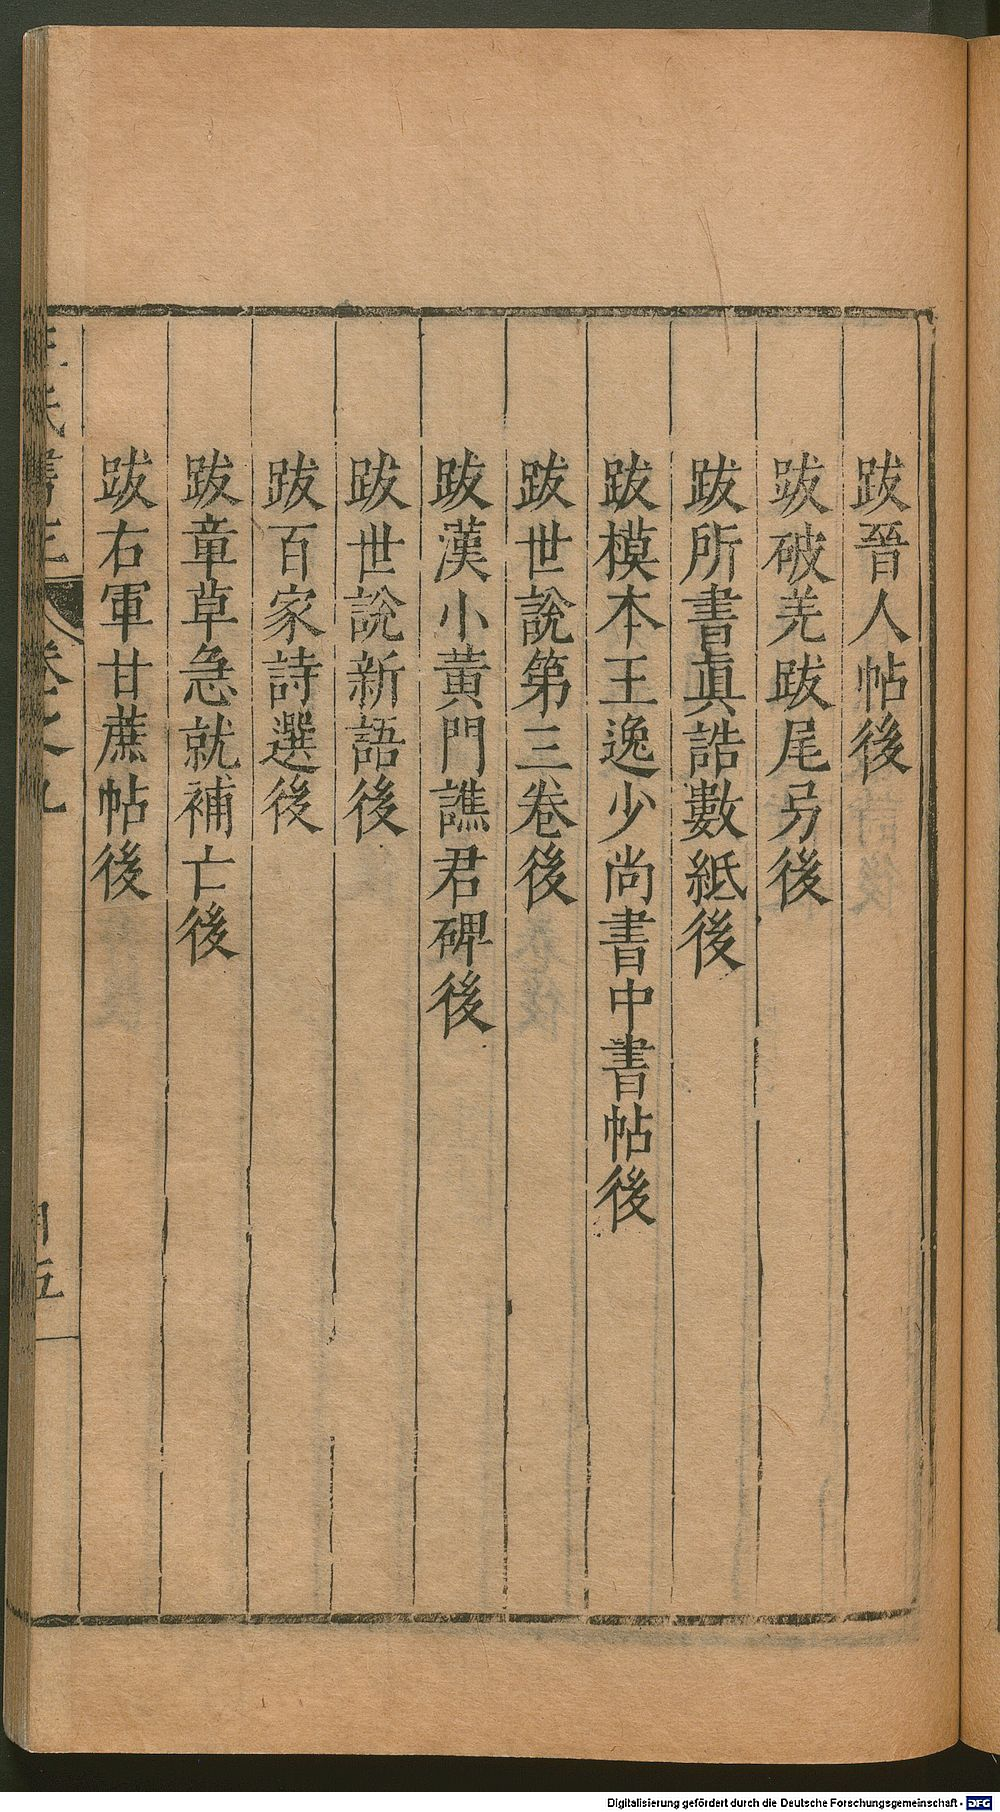 跋晉人帖後
跋破羌跋尾另後
跋所書眞誥數紙後
跋模本王逸少尚書中書帖後
跋世說第三卷後
跋漢小黃門譙君碑後
跋世說新語後
跋百家詩選後
跋章草急就補亡後
跋右軍甘蔗帖後
卷之九
五
Digitalisierung gefördert durch die Deutsche Forschungsgemeinschaft - DFG